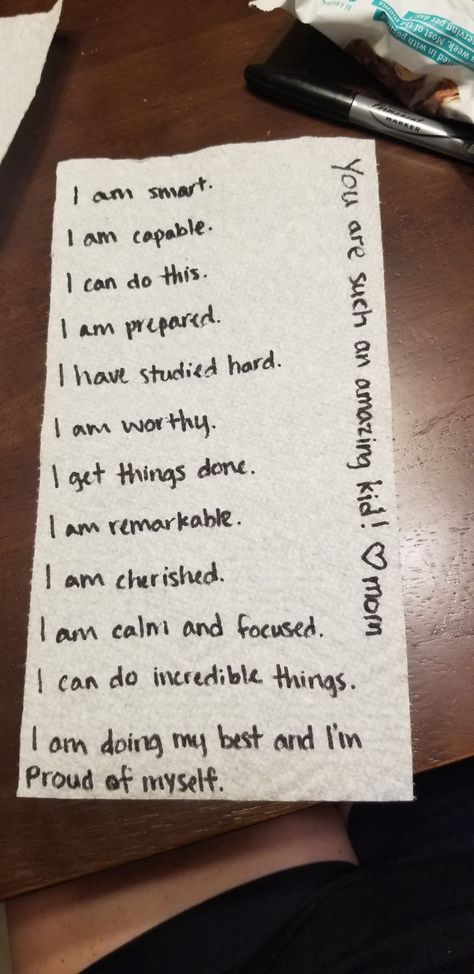 I am smart.
I am capable.
I can do this.
I am prepared.
I have studied hard.
I am worthy.
I get things done.
I am remarkable.
I am cherished.
I am calm and focused.
I can do incredible things.
I am doing my best and I'm
Proud of myself.
You are such an amazing kid! ♡ mom
MARKER